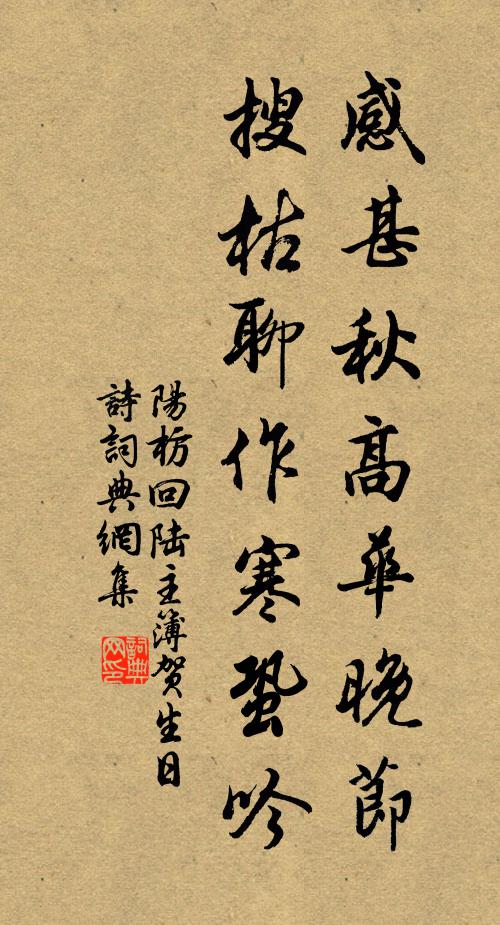 感甚秋高華晚節
搜枯聊作寒蛩吟
陽枋回陸主簿賀生日
詩詞典網集
詞典
网印